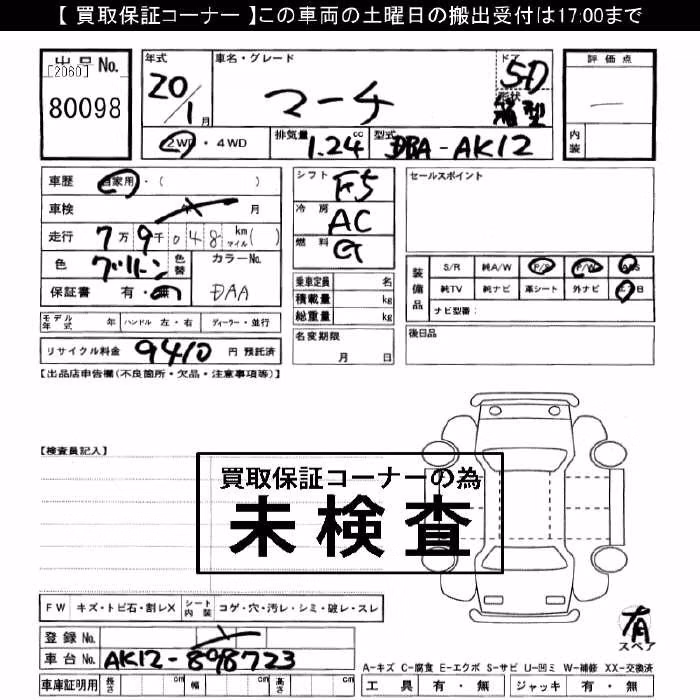 【 買取保証コーナー 】この車両の土曜日の搬出受付は17:00まで
出品No.
[2060]
80098
年式
20/1月
車名・グレード
マーチ
ドア
5D
形状
箱型
評価点
内装
2WD・4WD
排気量 1.24 cc
型式 DBA-AK12
車歴 自家用・( )
車検 年 月
走行 7万9千048 km マイル( )
色 グリーン 色替
カラーNo.
DAA
保証書 有・無
シフト F5
冷房 AC
燃料 G
乗車定員 名
積載量 kg
総重量 kg
セールスポイント
装備品
S/R 純A/W P/S P/W ABS
純TV 純ナビ 革シート 外ナビ エアB
ナビ型番:
モデル年式 年 ハンドル 左・右 ディーラー・並行
名変期限
月 日
後日品
リサイクル料金 9410 円 預託済
【出品店申告欄(不良箇所・欠品・注意事項等)】
【検査員記入】
買取保証コーナーの為
未検査
FW キズ・トビ石・割レX シート内装 コゲ・穴・汚レ・シミ・破レ・スレ
有
スペア
登録No.
車台No. AK12-898723
A-キズ C-腐食 E-エクボ S-サビ U-凹ミ W-補修 XX-交換済
車庫証明用 長さ cm 幅 cm 高さ cm
工具 有・無 ジャッキ 有・無